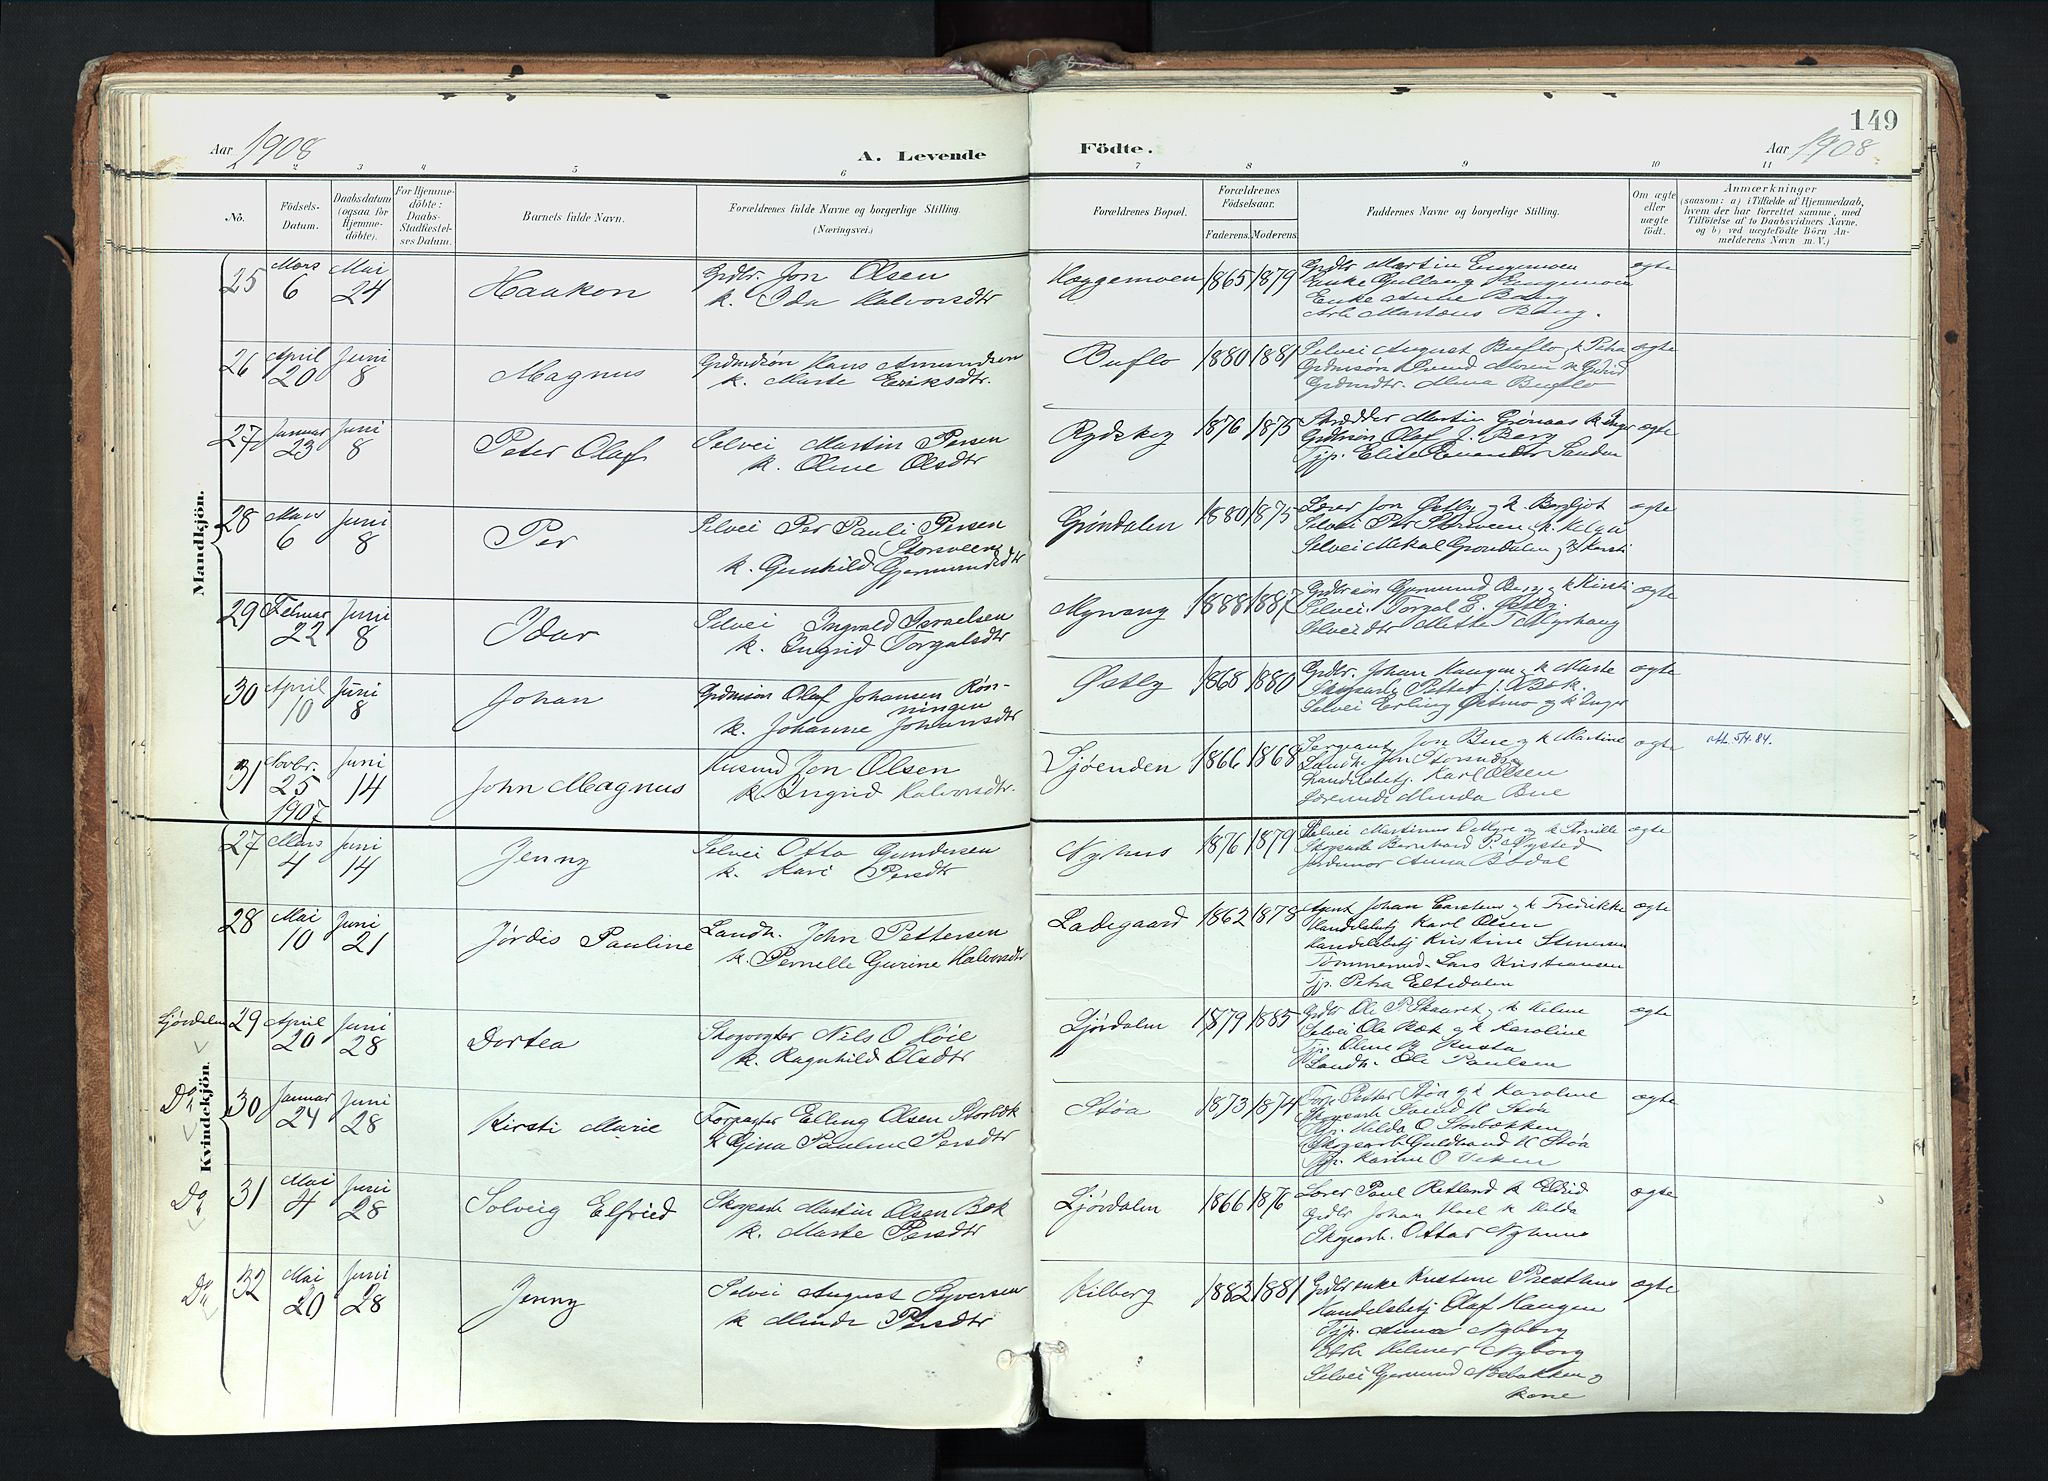 149
Aar 1908
A. Levende
Födte.
Aar 1908
2 3 4 5 6 7 8 9 10 11
No.
Födsels-Datum.
Daabsdatum (ogsaa for Hjemme-döbte).
For Hjemme-döbte: Daabs-Stadfæstel-ses Datum.
Barnets fulde Navn.
Forældrenes fulde Navne og borgerlige Stilling.
(Næringsvei.)
Forældrenes Bopæl.
Forældrenes Födselsaar.
Faderens. Moderens.
Faddernes Navne og borgerlige Stilling.
Om ægte eller uægte födt.
Anmærkninger
(saasom: a) i Tilfælde af Hjemmedaab, hvem der har forrettet samme, med Tilföielse af to Daabsvidners Navne, og b) ved uægtefödte Börn An-melderens Navn m. V.)
Mandkjön.
25 Mars 6 Mai 24 Haakon Grdbr. Jon Olsen
k. Ida Halvorsdtr
Hæggemoen 1865 1879 Grdbr Martin Engemoen
Enke Gullaug Engemoen
Enke Anne Bang
Arb Martinus Bang.
ægte
26 April 20 Juni 8 Magnus Grdmdsøn Hans Amundsen
k. Marte Eriksdtr.
Buflo 1880 1881 Selvei August Buflo, k Petra
Grdmsøn Moren k Gudrid
Grdmdtr. Buflo
ægte
27 Januar 23 Juni 8 Peter Olaf Selvei Martin Persen
k. Oline Olsdtr
Rydskog 1876 1875 Skrædder Martin Grønaas k Inger
Grdmsøn Olaf J. Berg
Tjp. Elise Sanden
ægte
28 Mars 6 Juni 8 Per Selvei Per Pauli Persen
Storsveen
k. Gunhild Gjermundsdtr
Grøndalen 1880 1875 Lærer Jon Østby og k Bergljot
Selvei Per k. Helga
Selvei Mikal Grøndalen og k Kersti
ægte
29 Februar 22 Juni 8 Idar Selvei Ingvald Israelsen
k. Ingrid Torgalsdtr
Myrvang 1888 1887 Grdbrsøn Gjermund Berg og k Kirsti
Selvei Torgal E. Østby.
Selveidtr Mette T Myrhaug
ægte
30 April 10 Juni 8 Johan Grdmsøn Olaf Johansen Røn-
ningen
k. Johanne Johansdtr
Østby 1868 1880 Grdbr. Johan Haugen, k Marte
Skogsarb Petter J. Bæk.
Selvei Erling Østmo og k Inger
ægte
31 Novbr. 25 1907 Juni 14 John Magnus Husmd Jon Olsen
k. Ingrid Halvorsdtr.
Sjøenden 1866 1868 Sergeant Jon Bue og k Martine
Landh. Jon
Handelsbetj. Karl Olsen
Minda Bue
ægte
att. 5/4. 84.
Kvindekjön.
27 Mars 4 Juni 14 Jenny Selvei Otto Gundersen
k. Kari Persdtr
Nyhus 1876 1879 Selvei Martinus og k Pernille
Skogsarb Bernhard P. Nysted
Jordmor Anna
ægte
28 Mai 10 Juni 21 Jørdis Pauline Landh. John Pettersen
k. Pernelle Gurine Halvorsdtr
Ladegaard 1862 1878 Agent Johan Carstens og k Fredrikke
Handelsbetj Karl Olsen
Handelsbetj Kristine Stenersen
Tømmermd. Lars Kristiansen
Tjp. Petra Eltsdalen
ægte
Ljørdalen 29 April 20 Juni 28 Dortea Skogvogter Nils O Høie
k. Ragnhild Olsdtr
Ljørdalen 1879 1885 Grdbr Ole P. Skaaret og k Helene
Selvei Ola Bæk og k Karoline
Tjp. Oline
Landh. Ole Paulsen
ægte
Do 30 Januar 24 Juni 28 Kirsti Marie Forpagter Elling Olsen Storbæk
k Gina Pauline Persdtr
Støa 1873 1874 Forp Petter Støa og k Karoline
Skogsarb H Støa
Tjp. Hilda O Storbækken
Skogsarb Guldbrand H Støa
Tjp. Karine O Viken
ægte
Do 31 Mai 4 Juni 28 Solveig Elfried Skogsarb Martin Olsen Bæk
k. Marte Persdtr
Ljørdalen 1866 1876 Lærer Paul Retland k Eldrid
Grdbr Johan Hoel k Hilda
Skogsarb. Ottar Nyanna
ægte
Do 32 Mai 20 Juni 28 Jenny Selvei August Syversen
k Minda Persdtr
Kilberg 1882 1881 Grdbr enke Kristine Præsthus
Handelsbetj Olaf Haugen
Tjp. Anna Nyborg
Arb Helmer Nyborg
Selvei Gjermund Næsbakken og
kone
ægte